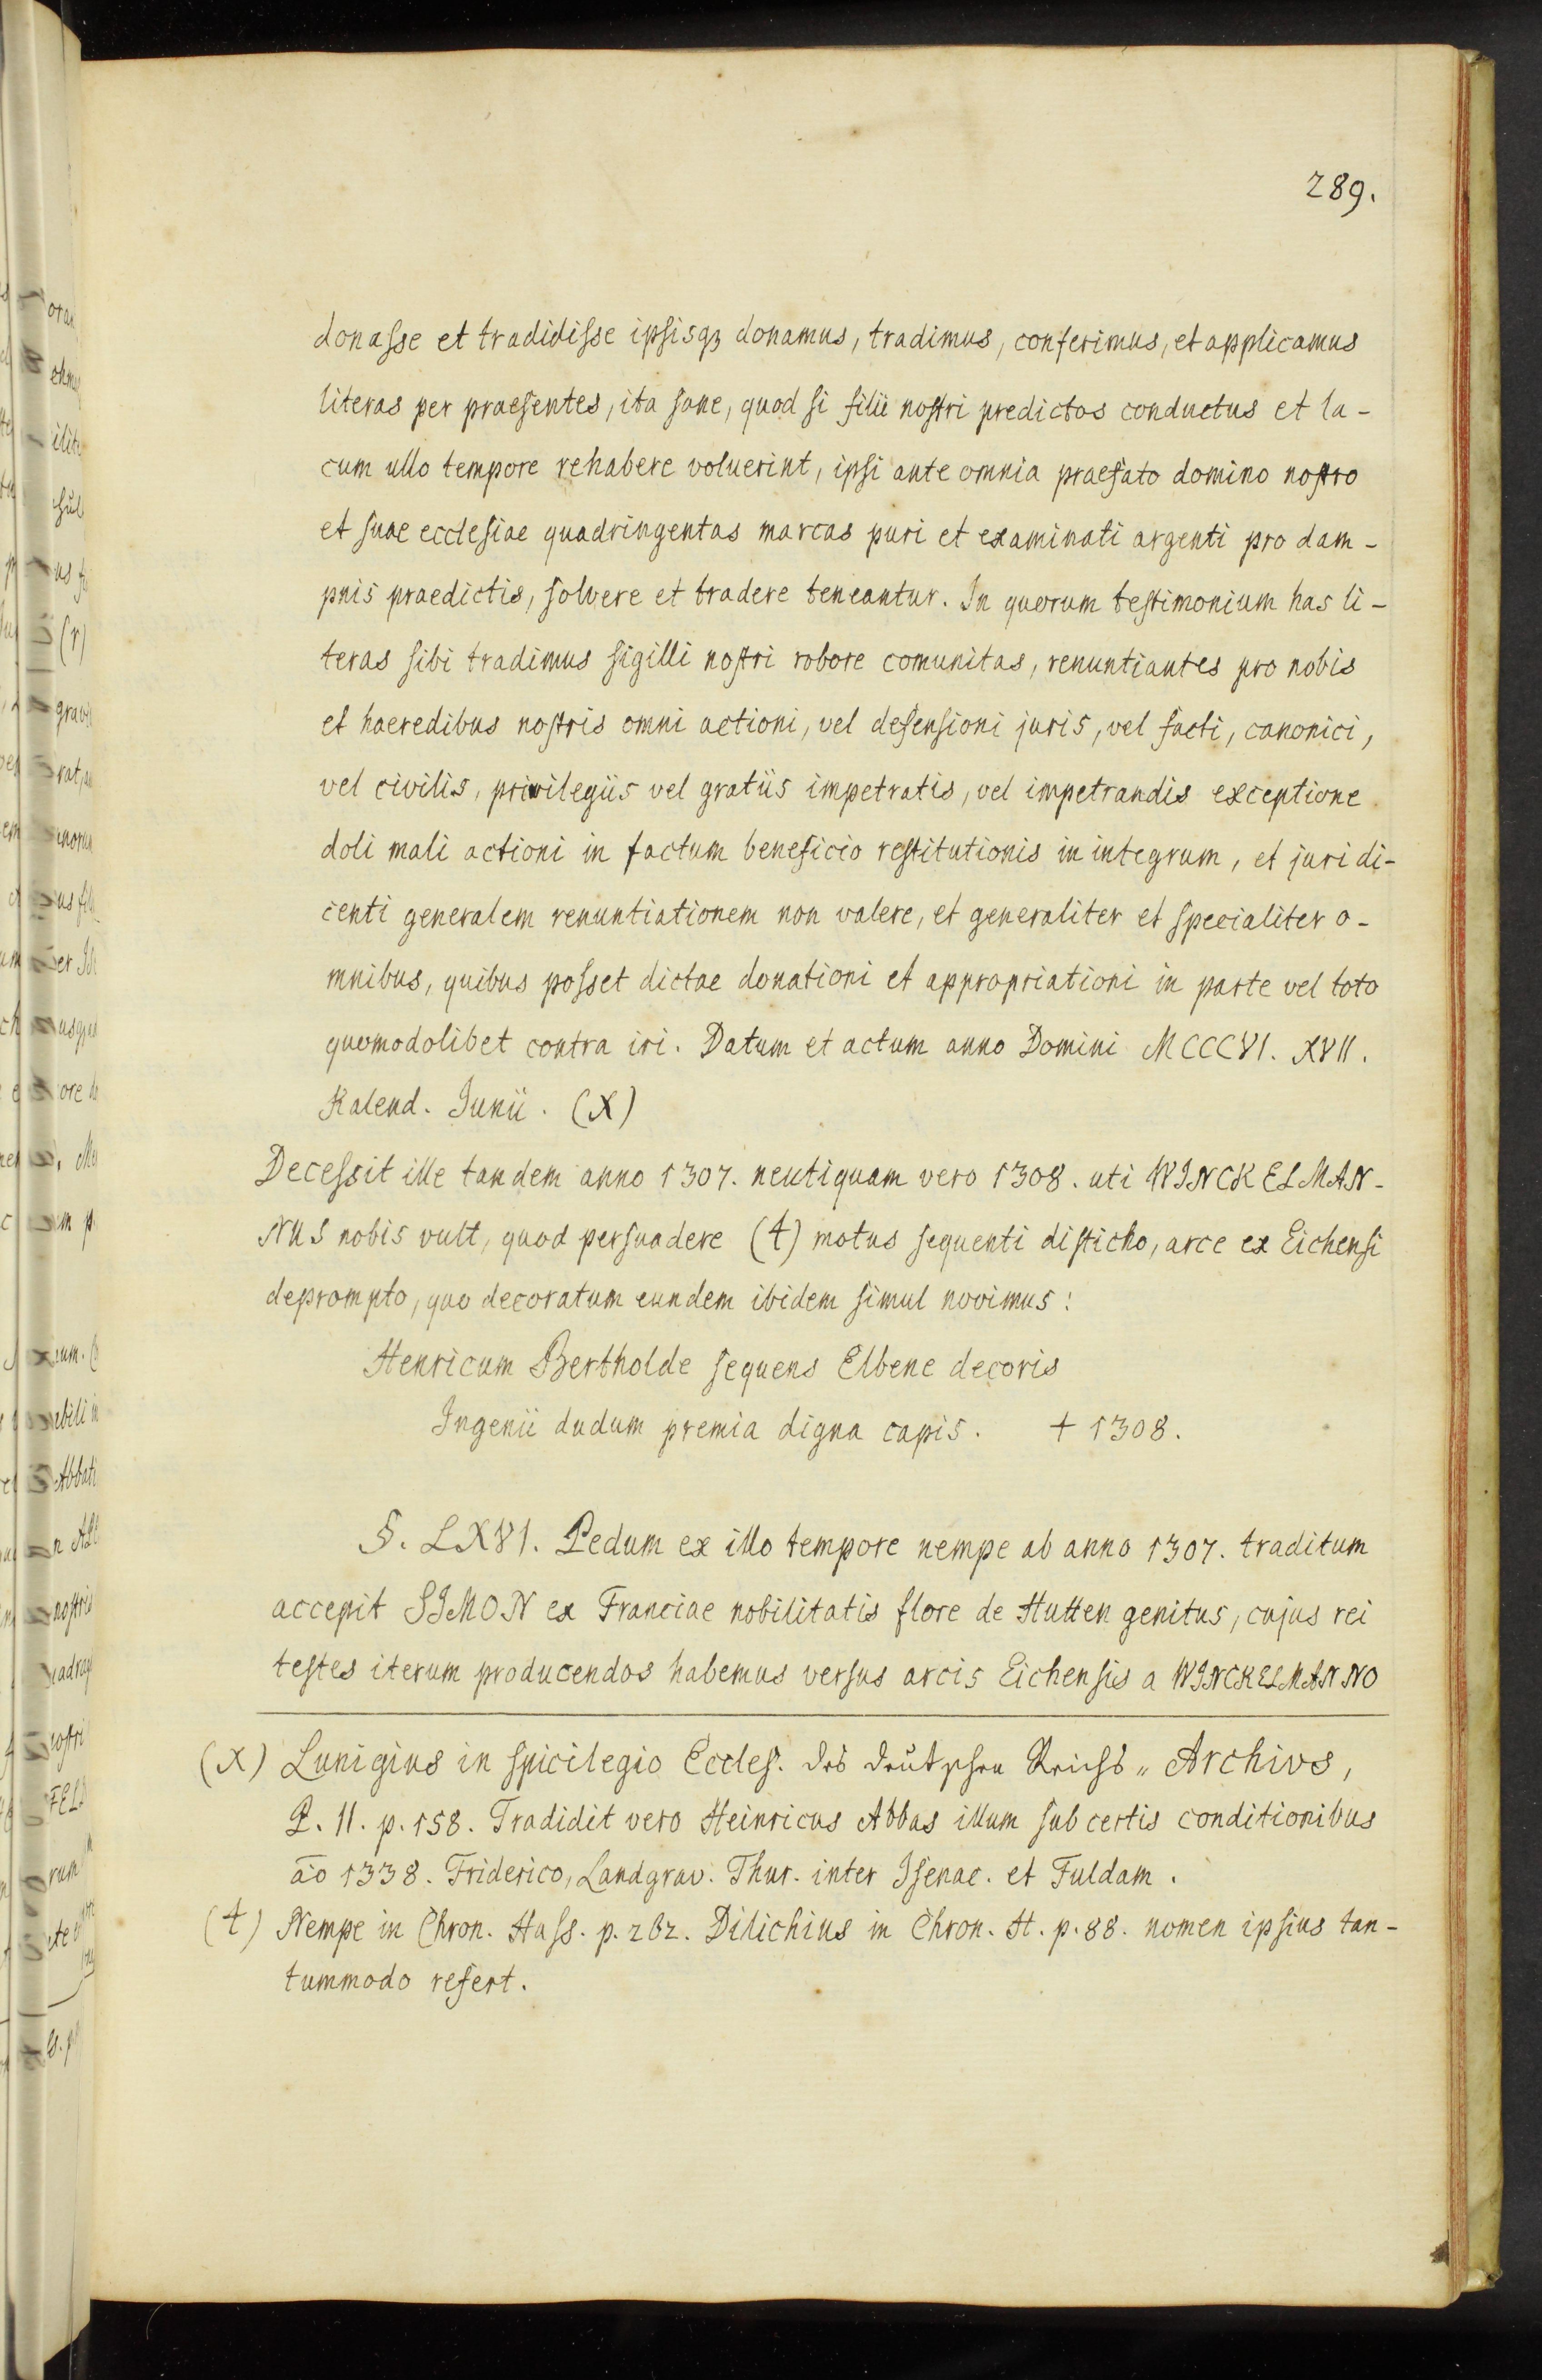 289.
donasse et tradidisse ipsisqꝫ donamus, tradimus, conferimus, et applicamus
literas per praesentes, ita sane, quod si filii nostri predictos conductus et la-
cum ullo tempore rehabere voluerint, ipsi ante omnia praefato domino nostro
et suae ecclesiae quadringentas marcas puri et examinati argenti pro dam-
pnis praedictis, solvere et tradere teneantur. In quorum testimonium has li-
teras sibi tradimus sigilli nostri robore comunitas, renuntiantes pro nobis
et haeredibus nostris omni actioni, vel defensioni juris, vel facti, canonici,
vel civilis, privilegiis vel gratiis impetratis, vel impetrandis exceptione
doli mali actioni in factum beneficio restitutionis in integrum, et juri di-
centi generalem renuntiationem non valere, et generaliter et specialiter o-
mnibus, quibus posset dictae donationi et appropriationi in parte vel toto
quomodolibet contra iri. Datum et actum anno Domini MCCCVI. XVII.
Kalend. Junii. (X)
Decessit ille tandem anno 1307. neutiquam vero 1308. uti WINCKELMAN-
NUS nobis vult, quod persuadere (t) motus sequenti disticho, arce ex Eichensi
deprompto, quo decoratum eundem ibidem simul novimus:
Henricum Bertholde sequens Elbene decoris
Ingenii dudum premia digna capis. † 1308.
§. LXVI. Pedum ex illo tempore nempe ab anno 1307. traditum
accepit SIMON ex Franciae nobilitatis flore de Hutten genitus, cujus rei
testes iterum producendos habemus versus arcis Eichensis a WINCKELMANNO
(X) Lunigius in spicilegio Eccles. des deutschen Reichs „ Archivs,
P. II. p. 158. Tradidit vero Heinricus Abbas illum sub certis conditionibus
āo 1338. Friderico, Landgrav. Thur. inter Isenac. et Fuldam.
(t) Nempe in Chron. Hass. p. 262. Dilichius in Chron. H. p. 88. nomen ipsius tan-
tummodo refert.